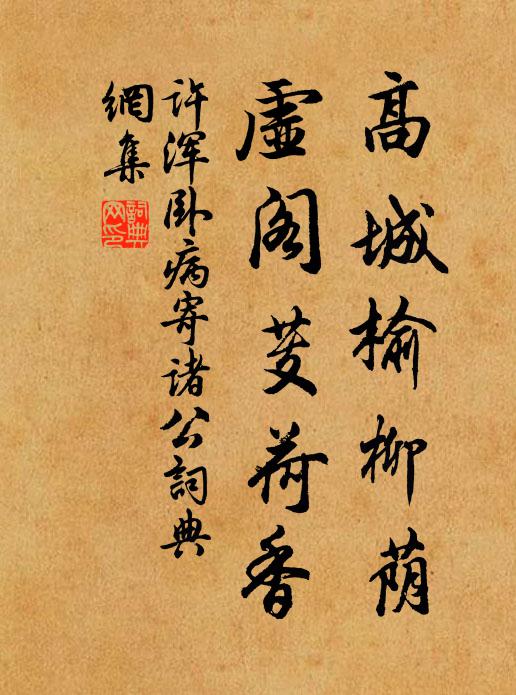 高城榆柳荫
虛阁芰荷香
许浑卧病寄诸公詞典
網集
詞典
网印